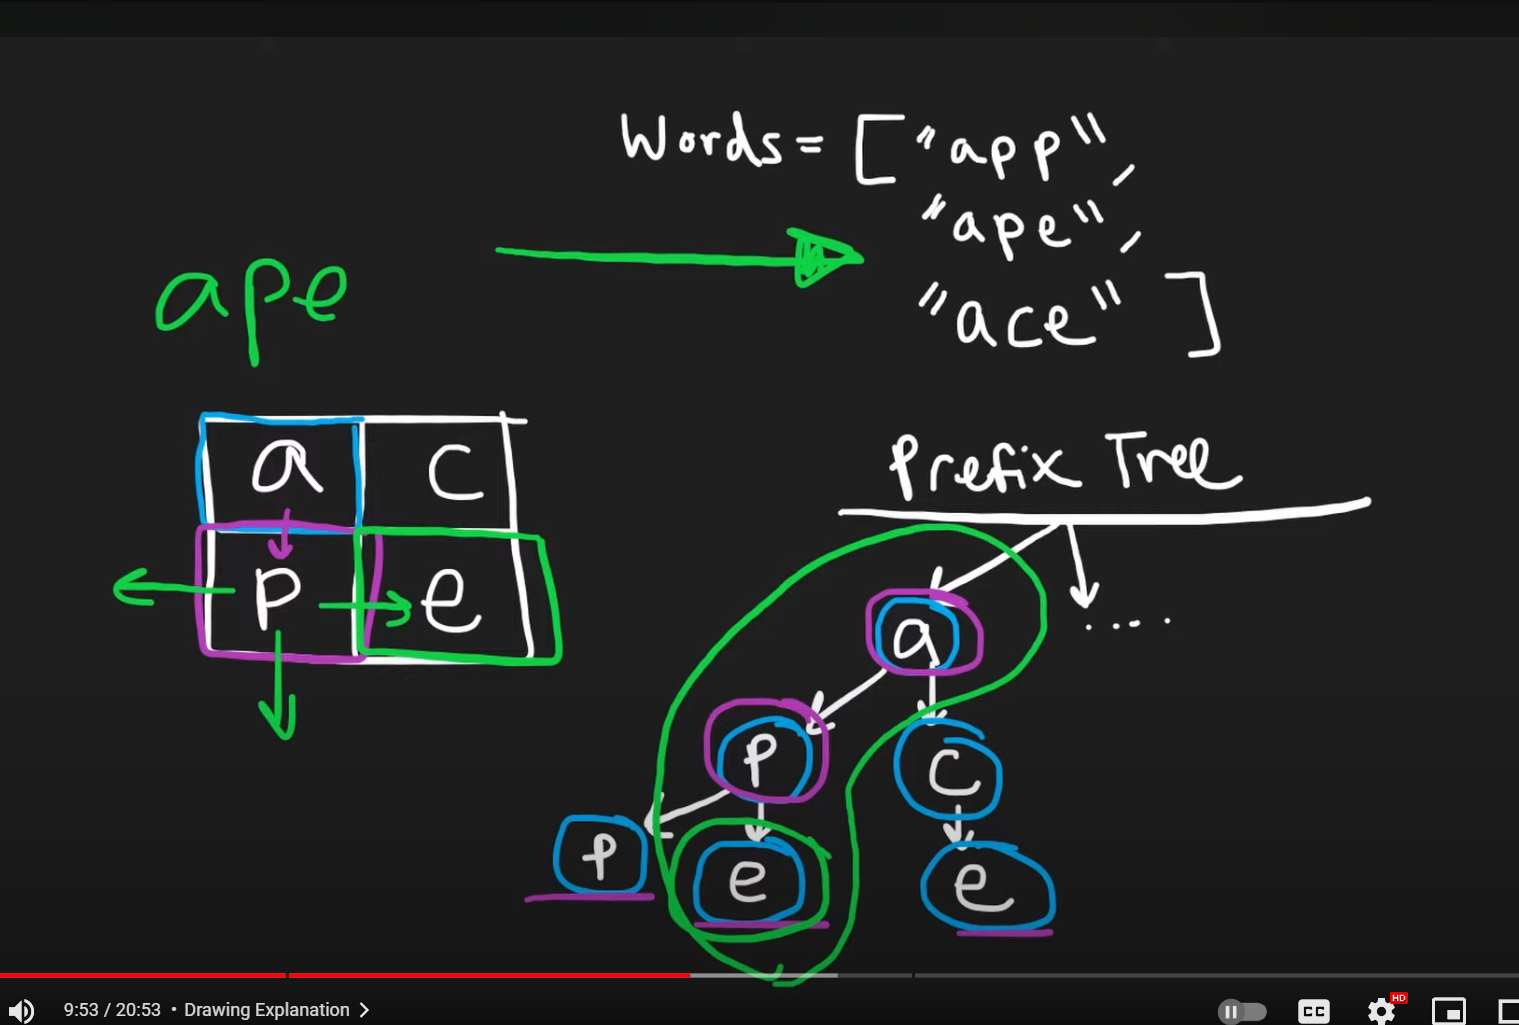 Words = ["app",
"ape",
"ace"]
ape
a c
p e
Prefix Tree
a
....
p c
p e e
9:53 / 20:53 • Drawing Explanation >
CC
HD